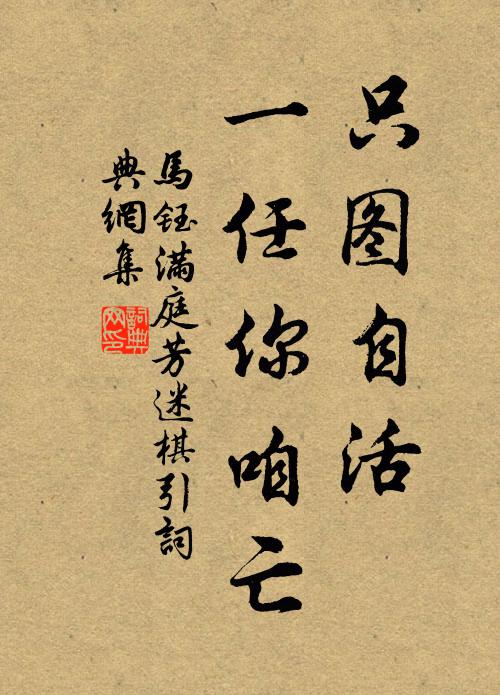 只图自活
一任你咱亡
馬鈺满庭芳迷棋引詞
典網集
詞典
网印